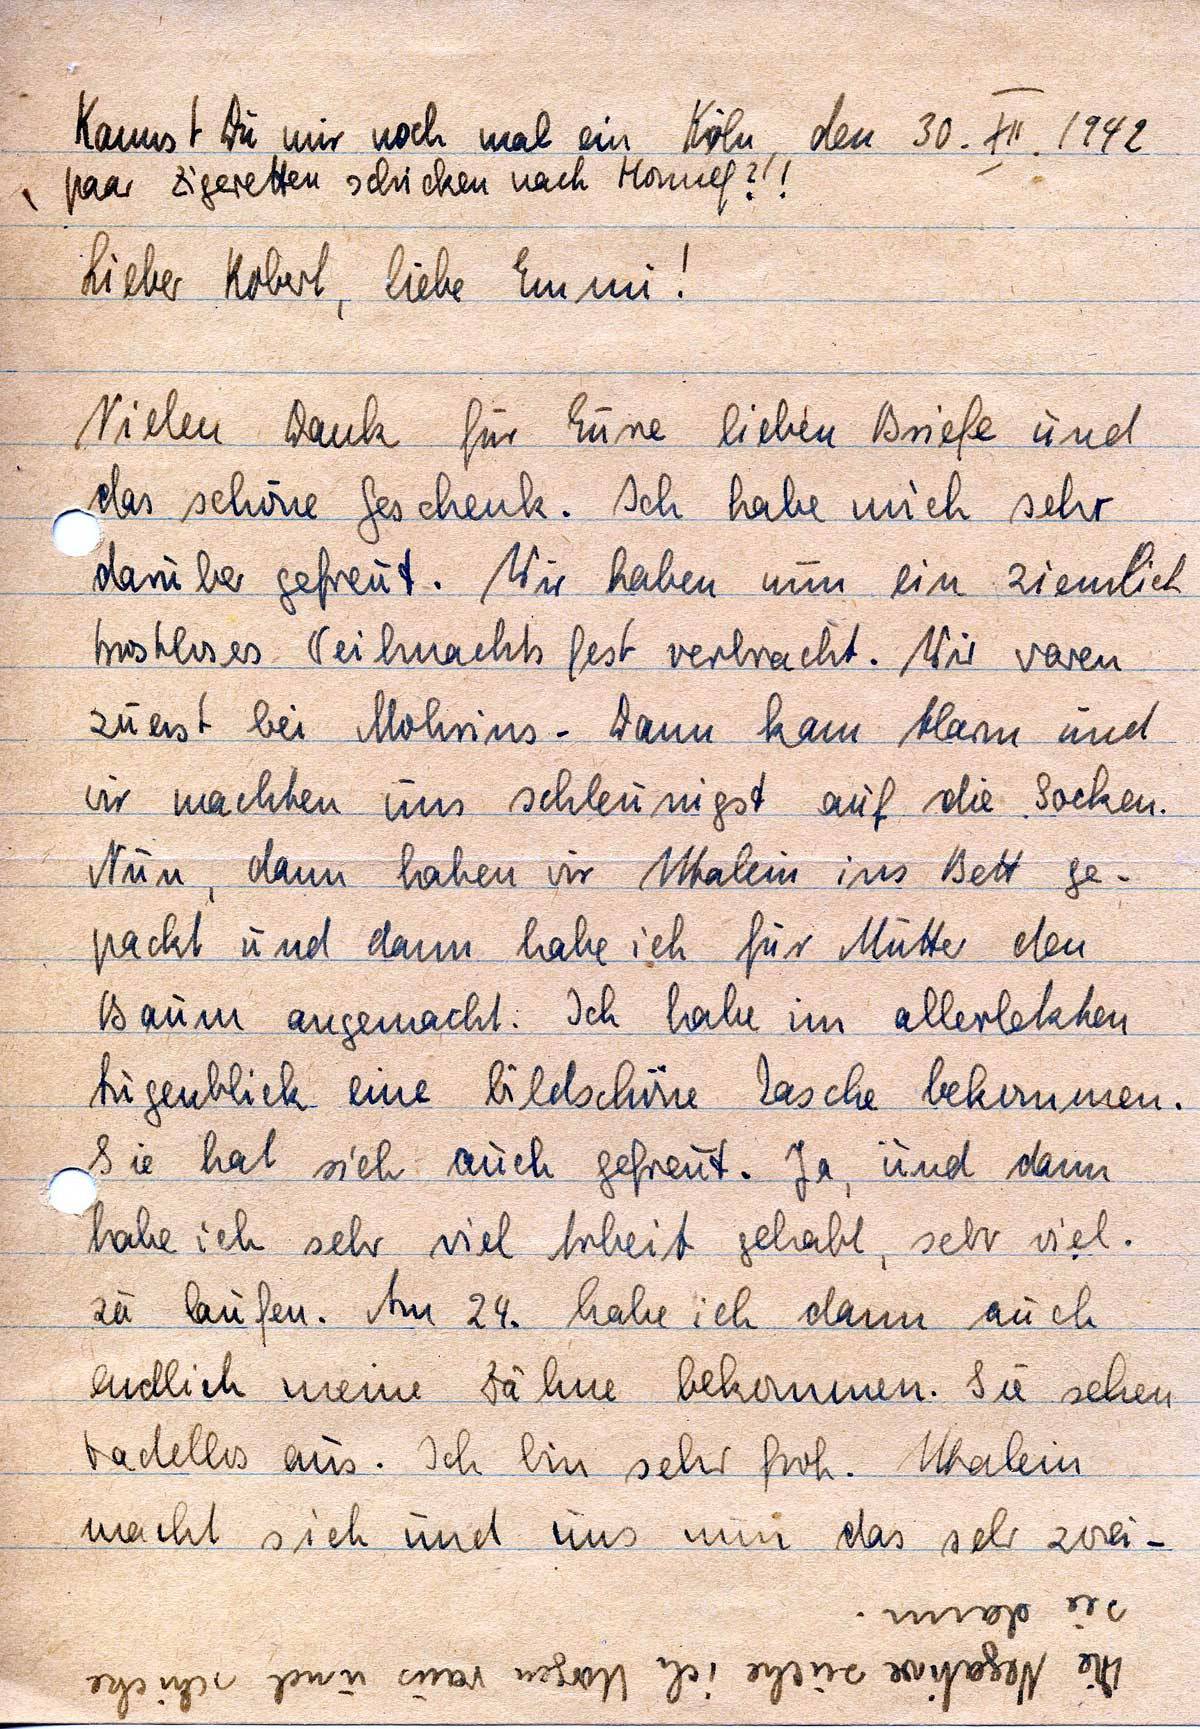 Kannst Du mir noch mal ein Köln, den 30. XII. 1942
paar Zigeretten schicken nach Honnef?!!
Lieber Robert, liebe Emmi!
Vielen Dank für Eure lieben Briefe und
das schöne Geschenk. Ich habe mich sehr
darüber gefreut. Wir haben nun ein ziemlich
trostloses Weihnachtsfest verbracht. Wir waren
zuerst bei Mohrins. Dann kam Alarm und
wir machten uns schleunigst auf die Socken.
Nun, dann haben wir Omalein ins Bett ge-
packt und dann habe ich für Mutter den
Baum angemacht. Ich habe im allerletzten
Augenblick eine bildschöne Tasche bekommen.
Sie hat sich auch gefreut. Ja, und dann
habe ich sehr viel Arbeit gehabt, sehr viel
zu laufen. Am 24. habe ich dann auch
endlich meine Zähne bekommen. Sie sehen
tadellos aus. Ich bin sehr froh. Omalein
macht sich und uns nun das sehr zwei-
Die Negative suche ich Morgen raus und schicke
sie dann.